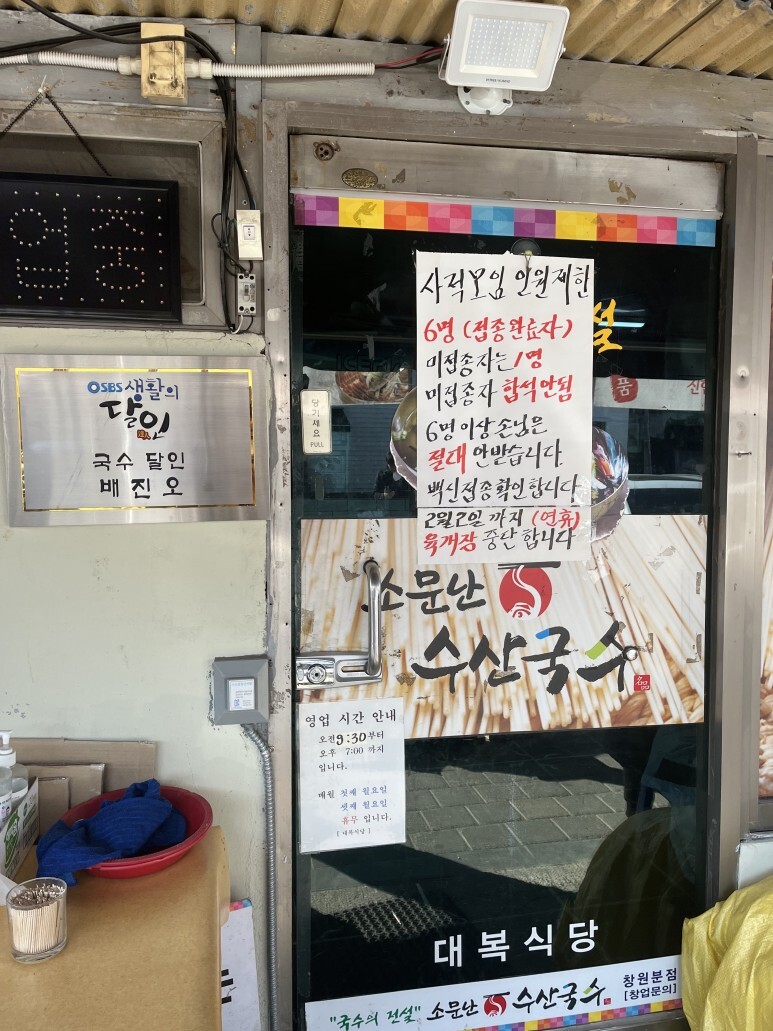 업중
SBS 생활의
달인
국수 달인
배진오
당기세요
PULL
사적모임 인원제한
6명 (접종완료자)
미접종자는 1명
미접종자 합석안됨
6명이상 손님은
절대 안받습니다.
백신접종확인합니다
2월2일 까지 (연휴)
육개장 중단 합니다
설
품
소문난
수산국수
영업 시간 안내
오전 9:30부터
오후 7:00 까지
입니다.
매월 첫째 월요일
셋째 월요일
휴무 입니다.
[대복식당]
대복식당
"국수의 전설" 소문난 수산국수 창원분점
[창업문의]